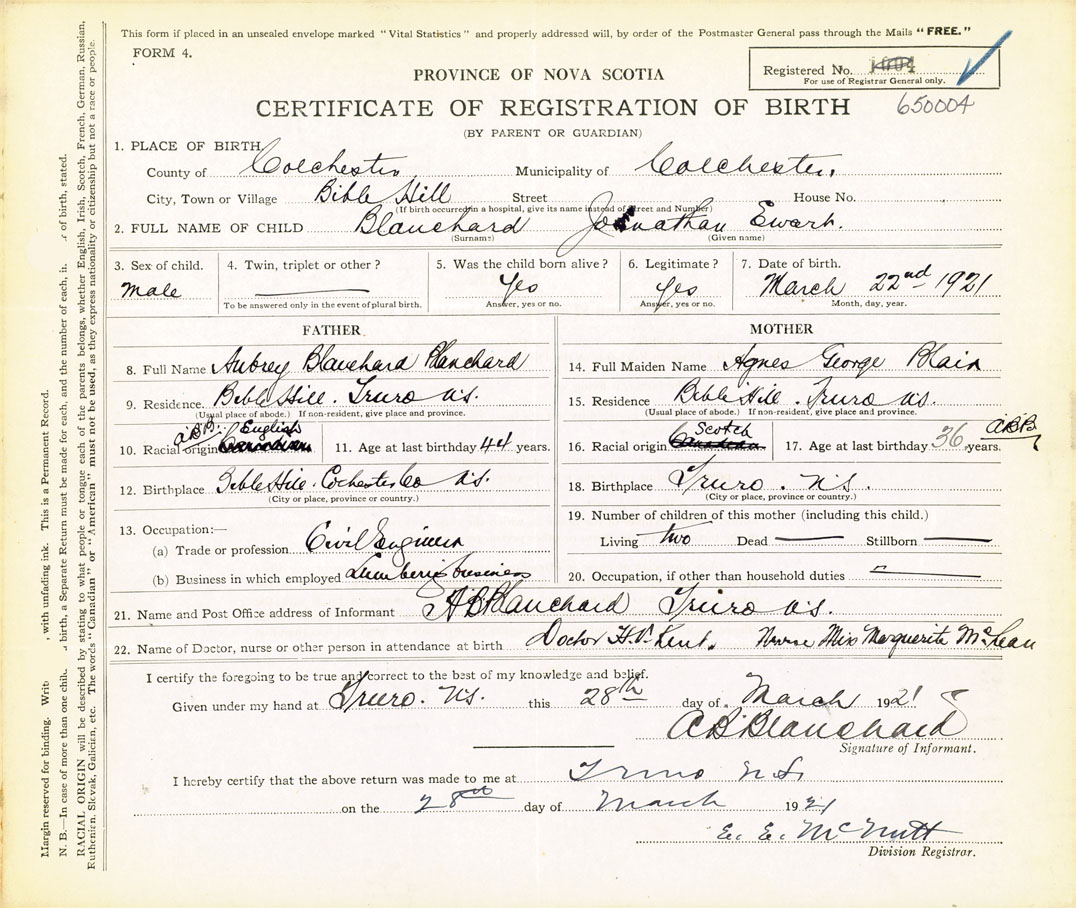 This form if placed in an unsealed envelope marked "Vital Statistics" and properly addressed will, by order of the Postmaster General pass through the Mails "FREE."
FORM 4.
PROVINCE OF NOVA SCOTIA
Registered No.
For use of Registrar General only.
CERTIFICATE OF REGISTRATION OF BIRTH
650004
(BY PARENT OR GUARDIAN)
1. PLACE OF BIRTH
County of Colchester Municipality of Colchester.
City, Town or Village Bible Hill Street House No.
(If birth occurred in a hospital, give its name instead of street and Number)
2. FULL NAME OF CHILD Blanchard Jonathan Ewart.
(Surname) (Given name)
3. Sex of child. 4. Twin, triplet or other? 5. Was the child born alive? 6. Legitimate? 7. Date of birth.
Male Yes Yes March 22nd 1921
To be answered only in the event of plural birth. Answer, yes or no. Answer, yes or no. Month, day, year.
FATHER MOTHER
8. Full Name Aubrey Blanchard Blanchard 14. Full Maiden Name Agnes George Blair
9. Residence. Bible Hill. Truro N.S. 15. Residence Bible Hill. Truro N.S.
(Usual place of abode.) If non-resident, give place and province. (Usual place of abode.) If non-resident, give place and province.
A.B.B. English Scotch A.B.B.
10. Racial origin Canadian 11. Age at last birthday 44 years. 16. Racial origin Canadian 17. Age at last birthday 36 years.
12. Birthplace Bible Hill. Colchester Co N.S. 18. Birthplace Truro. N.S.
(City or place, province or country.) (City or place, province or country.)
13. Occupation:— 19. Number of children of this mother (including this child.)
(a) Trade or profession Civil Engineer Living two Dead Stillborn
(b) Business in which employed Lumbering business 20. Occupation, if other than household duties
21. Name and Post Office address of Informant A B Blanchard Truro N.S.
22. Name of Doctor, nurse or other person in attendance at birth Doctor H.V. Kent. Nurse Miss Marguerite McLean
I certify the foregoing to be true and correct to the best of my knowledge and belief.
Given under my hand at Truro. N.S. this 28th day of March 1921
A B Blanchard
Signature of Informant.
I hereby certify that the above return was made to me at Truro N.S.
on the 28th day of March 1921
E. E. McNutt
Division Registrar.
Margin reserved for binding. with unfading ink. This is a Permanent Record.
N. B.—In case of more than one birth, a Separate Return must be made for each, and the number of each, of birth, stated.
RACIAL ORIGIN will be described by stating to what people or tongue each of the parents belongs, whether English, Irish, Scotch, French, German, Russian,
Ruthenian, Slovak, Galician, etc. The words "Canadian" or "American" must not be used, as they express nationality or citizenship but not a race or people.